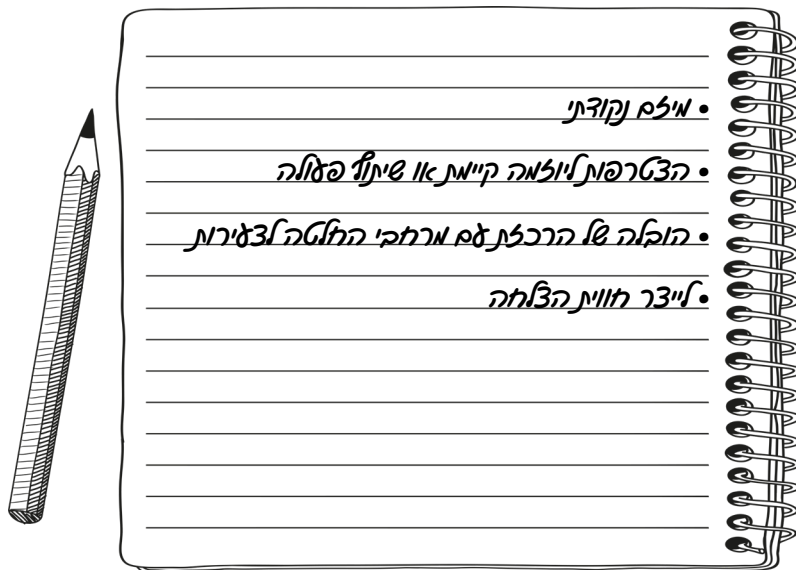 • מיזם נקודתי
• הצטרפות ליוזמה קיימת או שיתוף פעולה
• הובלה של הרכזת עם מרחבי החלטה לצעירות
• לייצר חווית הצלחה